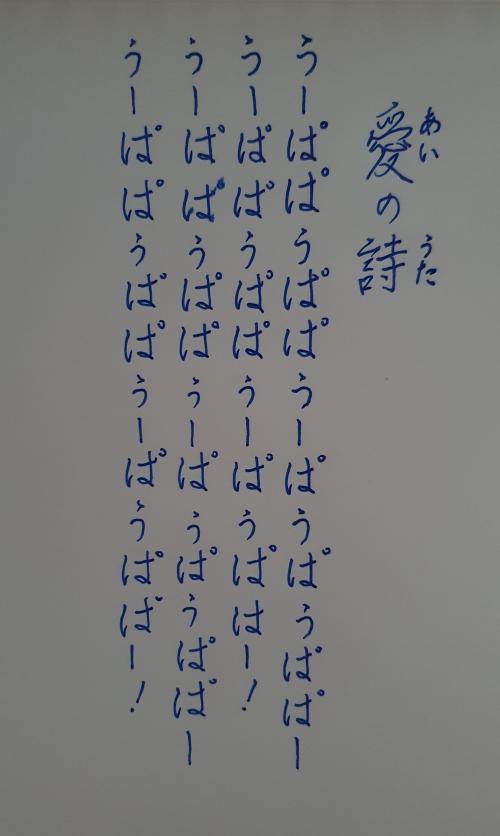 あい うた
愛の詩
うーぱぱうぱぱうーぱうぱうぱぱー
うーぱぱうぱぱうーぱうぱはー！
うーぱぱうぱぱうーぱうぱうぱぱー
うーぱぱうぱぱうーぱうぱぱー！